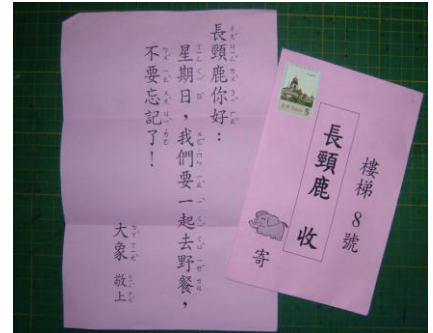 長頸鹿你好：
星期日，我們要一起去野餐，
不要忘記了！
大象 敬上
樓梯8號
長頸鹿 收
寄
5